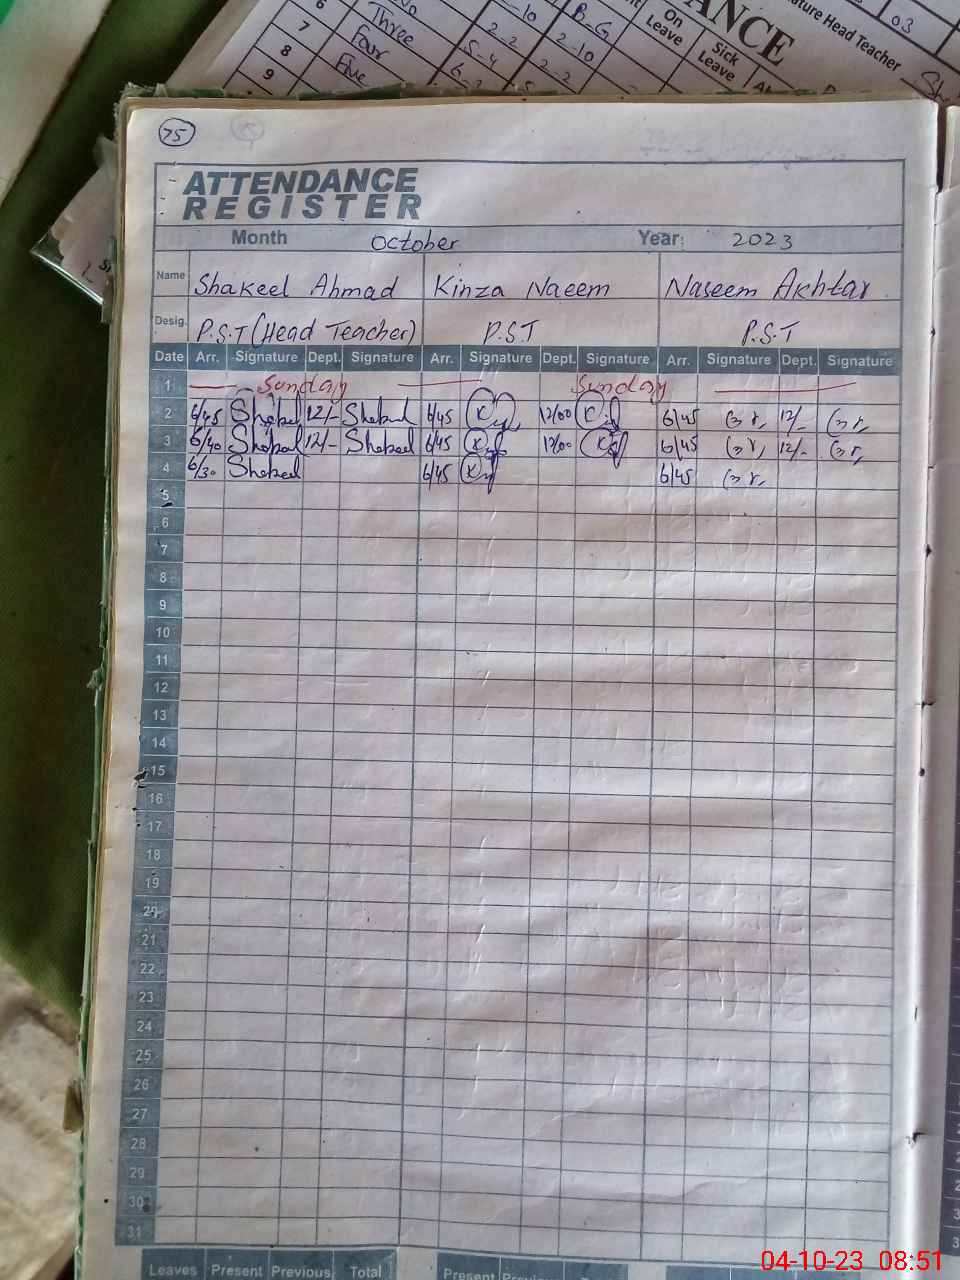 6
7 Three 2-2 2-10
8 Four 5-4 2-2
9 Five
B-G
On Leave
Sick Leave
Head Teacher
03
75
ATTENDANCE
REGISTER
Month October Year: 2023
Name Shakeel Ahmad Kinza Naeem Naseem Akhtar
Desig. P.S.T (Head Teacher) P.S.T P.S.T
Date Arr. Signature Dept. Signature Arr. Signature Dept. Signature Arr. Signature Dept. Signature
1 Sunday Sunday
2 6/45 Shakeel 12/- Shakeel 6/45 12/00 6/45 12/-
3 6/40 Shakeel 12/- Shakeel 6/45 12/00 6/45 12/-
4 6/30 Shakeel 6/45 6/45
5
6
7
8
9
10
11
12
13
14
15
16
17
18
19
20
21
22
23
24
25
26
27
28
29
30
31
Leaves Present Previous Total Present
04-10-23 08:51